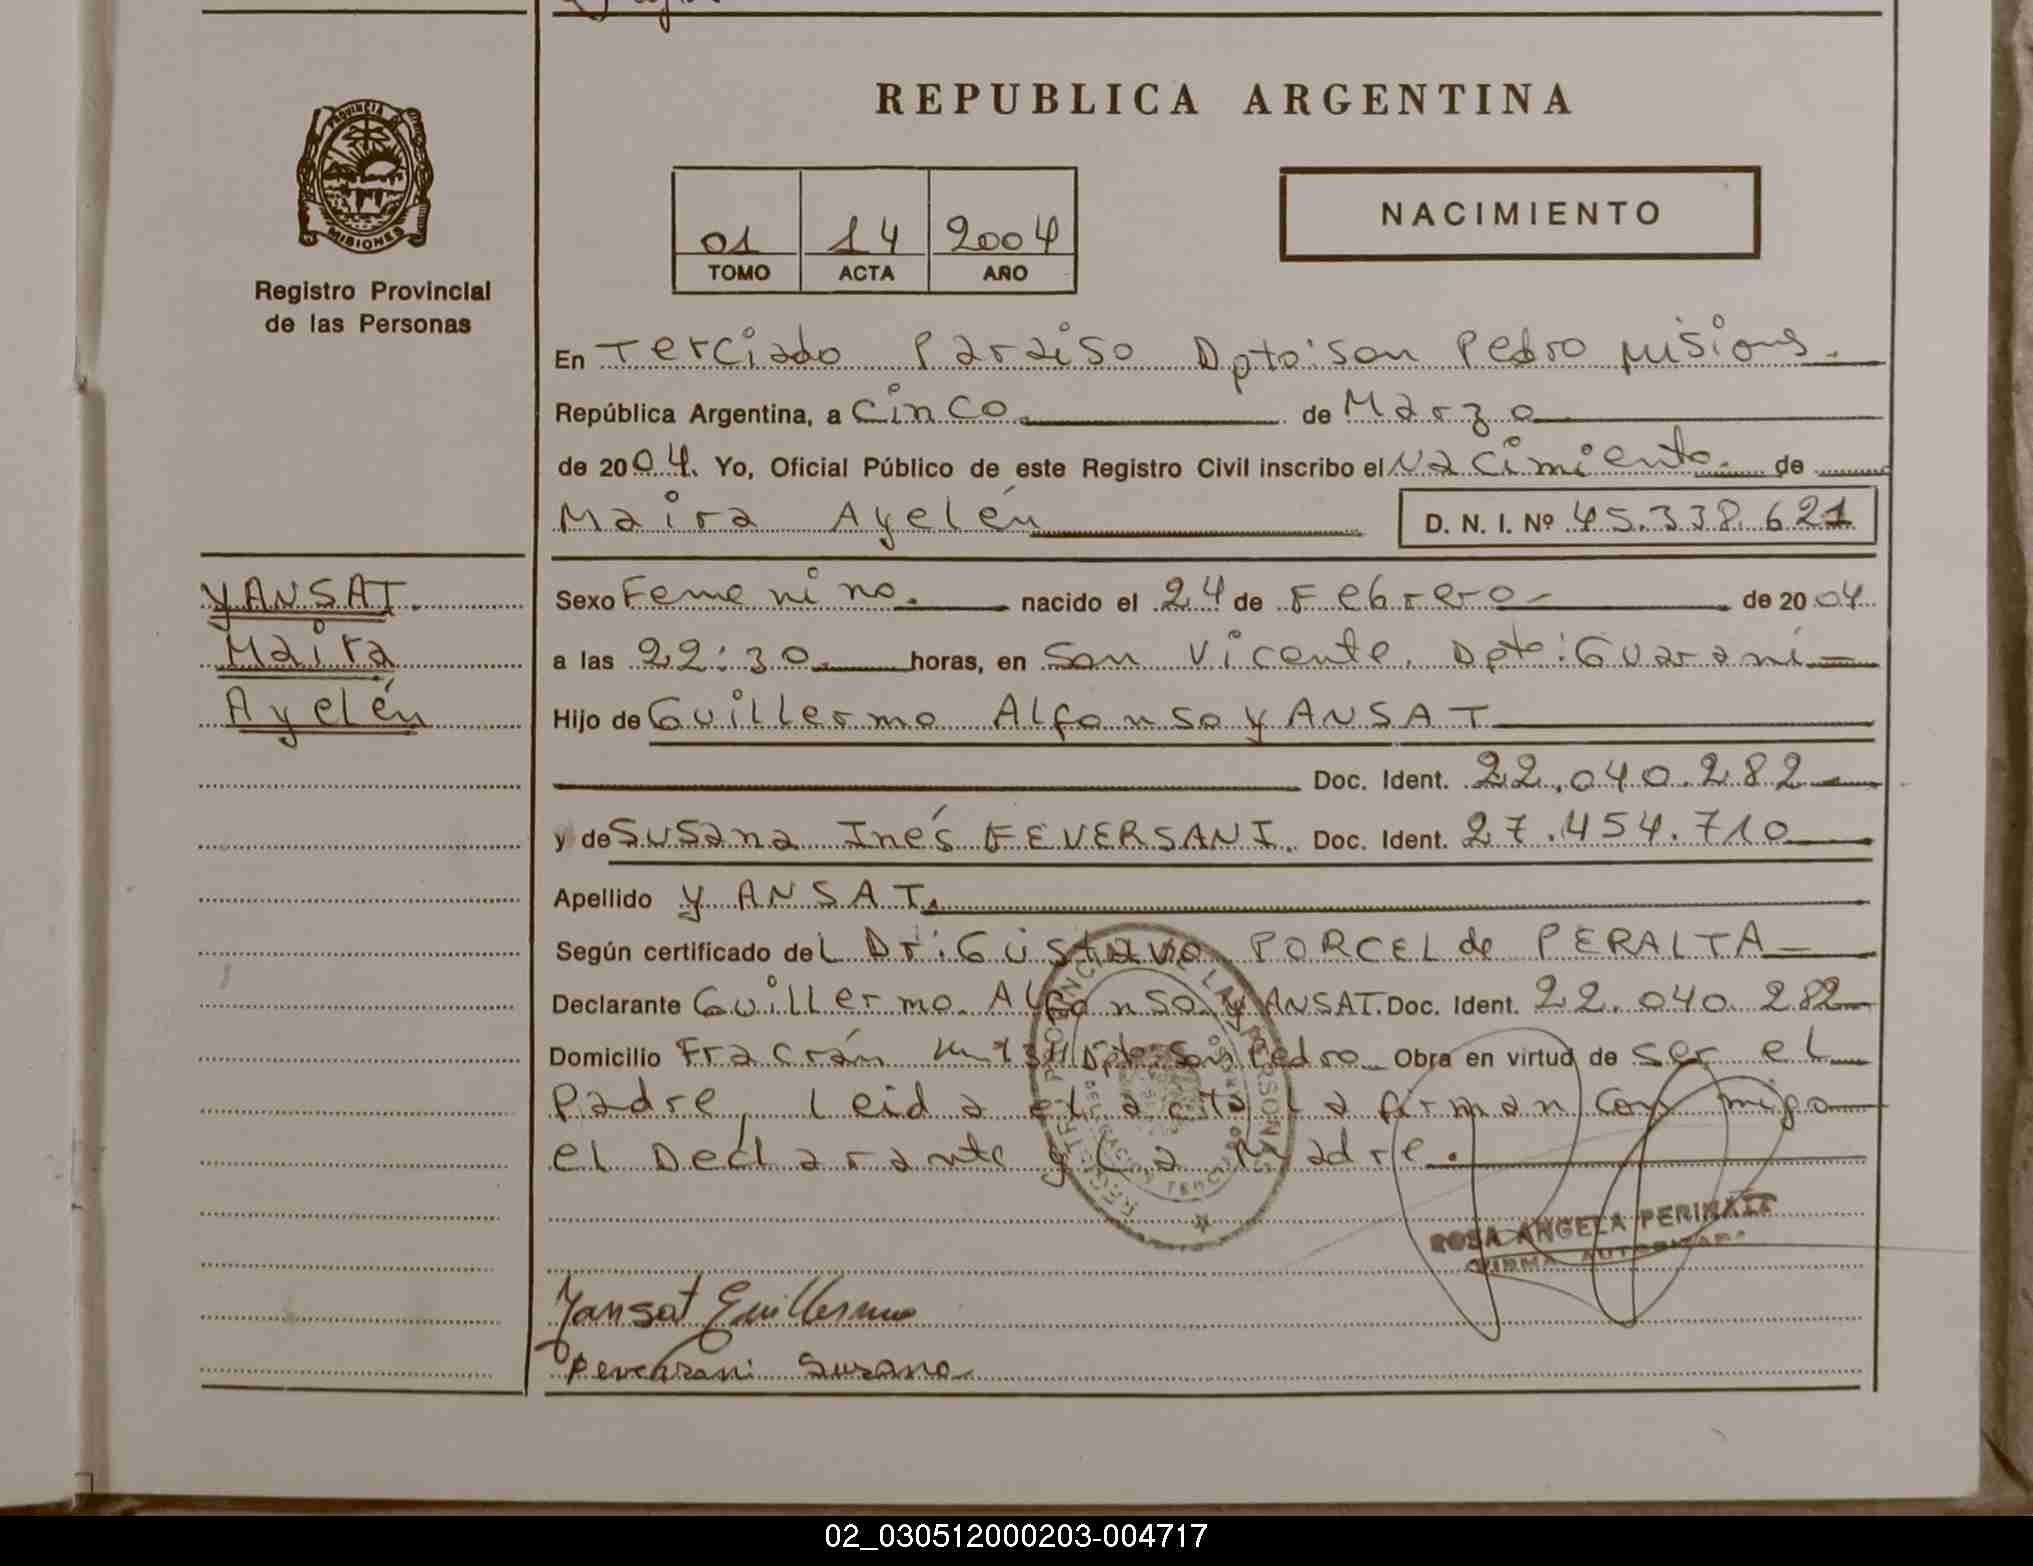 PROVINCIA DE
MISIONES
Registro Provincial
de las Personas
REPUBLICA ARGENTINA
01 14 2004
TOMO ACTA AÑO
NACIMIENTO
En Terciado Paraiso Dpto: San Pedro Misiones.
República Argentina, a Cinco de Marzo
de 2004. Yo, Oficial Público de este Registro Civil inscribo el Nacimiento de
Maira Ayelén D. N. I. Nº 45.338.621
YANSAT.
Maira
Ayelén
Sexo Femenino. nacido el 24 de Febrero de 2004
a las 22:30 horas, en San Vicente. Dpto: Guaraní
Hijo de Guillermo Alfonso YANSAT
Doc. Ident. 22.040.282
y de Susana Inés FEVERSANI. Doc. Ident. 27.454.710
Apellido YANSAT.
Según certificado del Dr: Gustavo PORCEL de PERALTA
Declarante Guillermo Alfonso YANSAT. Doc. Ident. 22.040.282
Domicilio Fracrán Dpto San Pedro. Obra en virtud de ser el
Padre, Leida el acta La firman con migo
el Declarante y La Madre.
ROSA ANGELA
FIRMA AUTORIZADA
Yansat Guillermo
Peversani Susana
02_030512000203-004717